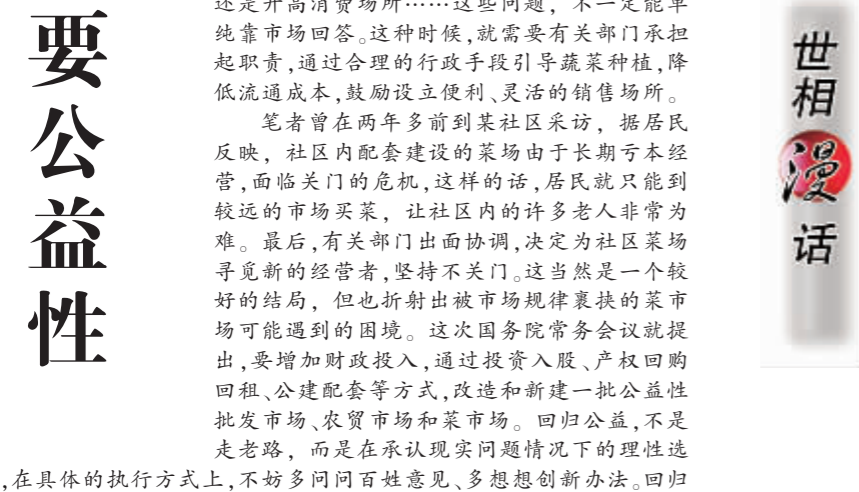 要公益性
还是开高消费场所……这些问题，不一定能单
纯靠市场回答。这种时候,就需要有关部门承担
起职责,通过合理的行政手段引导蔬菜种植,降
低流通成本,鼓励设立便利、灵活的销售场所。
笔者曾在两年多前到某社区采访，据居民
反映，社区内配套建设的菜场由于长期亏本经
营,面临关门的危机,这样的话,居民就只能到
较远的市场买菜，让社区内的许多老人非常为
难。最后,有关部门出面协调,决定为社区菜场
寻觅新的经营者,坚持不关门。这当然是一个较
好的结局，但也折射出被市场规律裹挟的菜市
场可能遇到的困境。这次国务院常务会议就提
出,要增加财政投入,通过投资入股、产权回购
回租、公建配套等方式,改造和新建一批公益性
批发市场、农贸市场和菜市场。回归公益,不是
走老路，而是在承认现实问题情况下的理性选
,在具体的执行方式上,不妨多问问百姓意见、多想想创新办法。回归
世相漫话